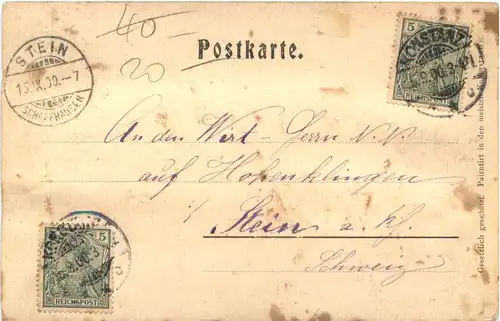 40.-
20
Postkarte.
STEIN
15.IX.00.-7
SCHAFFHAUSEN
5
REICHSPOST
KONSTANZ
An den Wirt - Herrn N. N.
auf Hohenklingen
Stein a. Rh.
Schweiz
5
REICHSPOST
Gesetzlich geschützt. Patentirt in den meisten